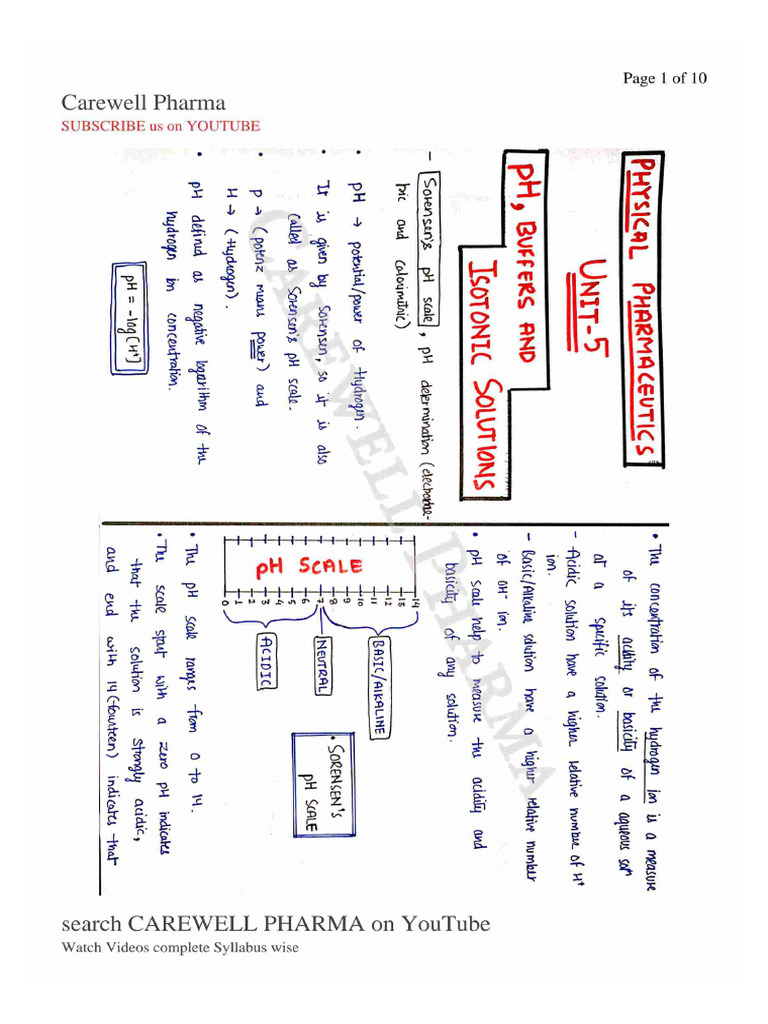 Page 1 of 10
Carewell Pharma
SUBSCRIBE us on YOUTUBE
PHYSICAL PHARMACEUTICS
UNIT-5
pH, BUFFERS AND
ISOTONIC SOLUTIONS
- Sorensen's pH scale, pH determination (electrome-
tric and calorimetric)
• pH → potential/power of Hydrogen.
• It is given by Sorensen, so it is also
called as Sorensen's pH scale.
• p → (potenz means power) and
H → (Hydrogen).
• pH defined as negative logarithm of the
hydrogen ion concentration.
pH = -log[H⁺]
• The concentration of the hydrogen ion is a measure
of its acidity or basicity of a aqueous solⁿ
at a specific solution.
- Acidic solution have a higher relative number of H⁺
ion.
- Basic/Alkaline solution have a higher relative number
of OH⁻ ion.
• pH scale help to measure the acidity and
basicity of any solution.
pH SCALE
0 1 2 3 4 5 6 7 8 9 10 11 12 13 14
ACIDIC
NEUTRAL
BASIC/AlKALINE
• SORENSEN'S
pH SCALE
• The pH scale ranges from 0 to 14.
• The scale start with a zero pH indicates
that the solution is strongly acidic,
and end with 14 (fourteen) indicates that
CAREWELL PHARMA
search CAREWELL PHARMA on YouTube
Watch Videos complete Syllabus wise